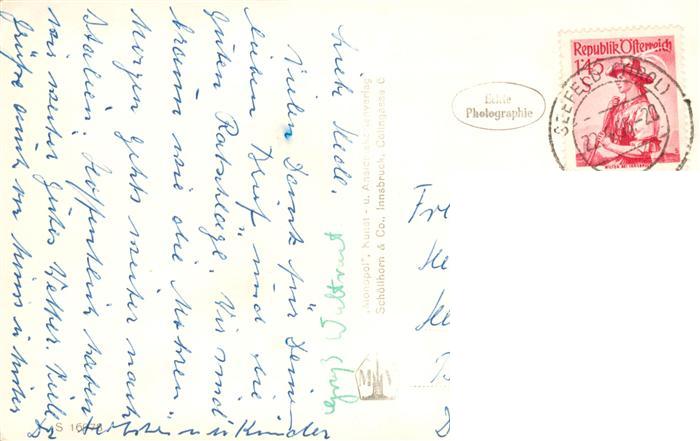 Liebe Hedl.
Vielen Dank für Deinen
lieben Brief und die
guten Ratschläge. Wir sind
braun wie die Mohren.
Morgen gehts weiter nach
Italien. Hoffentlich haben
wir weiter gutes Wetter. Viele
Grüße auch an
u Kinder
Gruß Waltraut
"Monopol", Kunst- u. Ansichtskartenverlag
Schöllhorn & Co., Innsbruck, Cölingasse
Echte
Photographie
Republik Österreich
1'45
SEEFELD (TIROL)